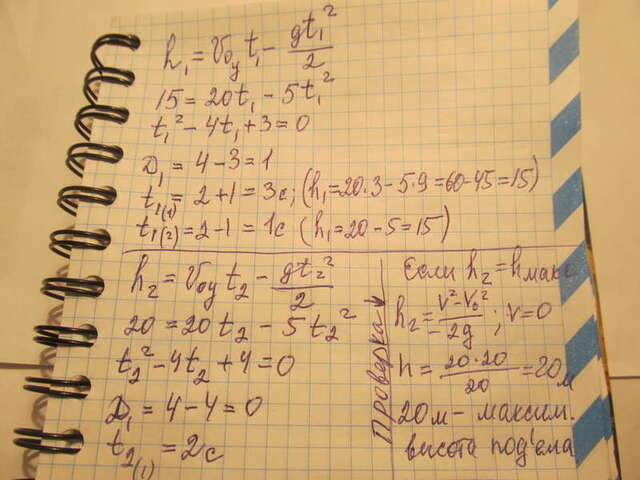 h₁ = V₀у t₁ − gt₁²/2
15 = 20t₁ − 5t₁²
t₁² − 4t₁ + 3 = 0
D₁ = 4 − 3 = 1
t₁₍₁₎ = 2 + 1 = 3с; (h₁ = 20·3 − 5·9 = 60 − 45 = 15)
t₁₍₂₎ = 2 − 1 = 1с (h₁ = 20 − 5 = 15)
h₂ = V₀у t₂ − gt₂²/2
20 = 20t₂ − 5t₂²
t₂² − 4t₂ + 4 = 0
D₁ = 4 − 4 = 0
t₂₍₁₎ = 2с
Проверка
Если h₂ = hмакс
h₂ = V² − V₀²/−2g ; V = 0
h = 20·20/20 = 20м
20м – максим.
высота под'ема